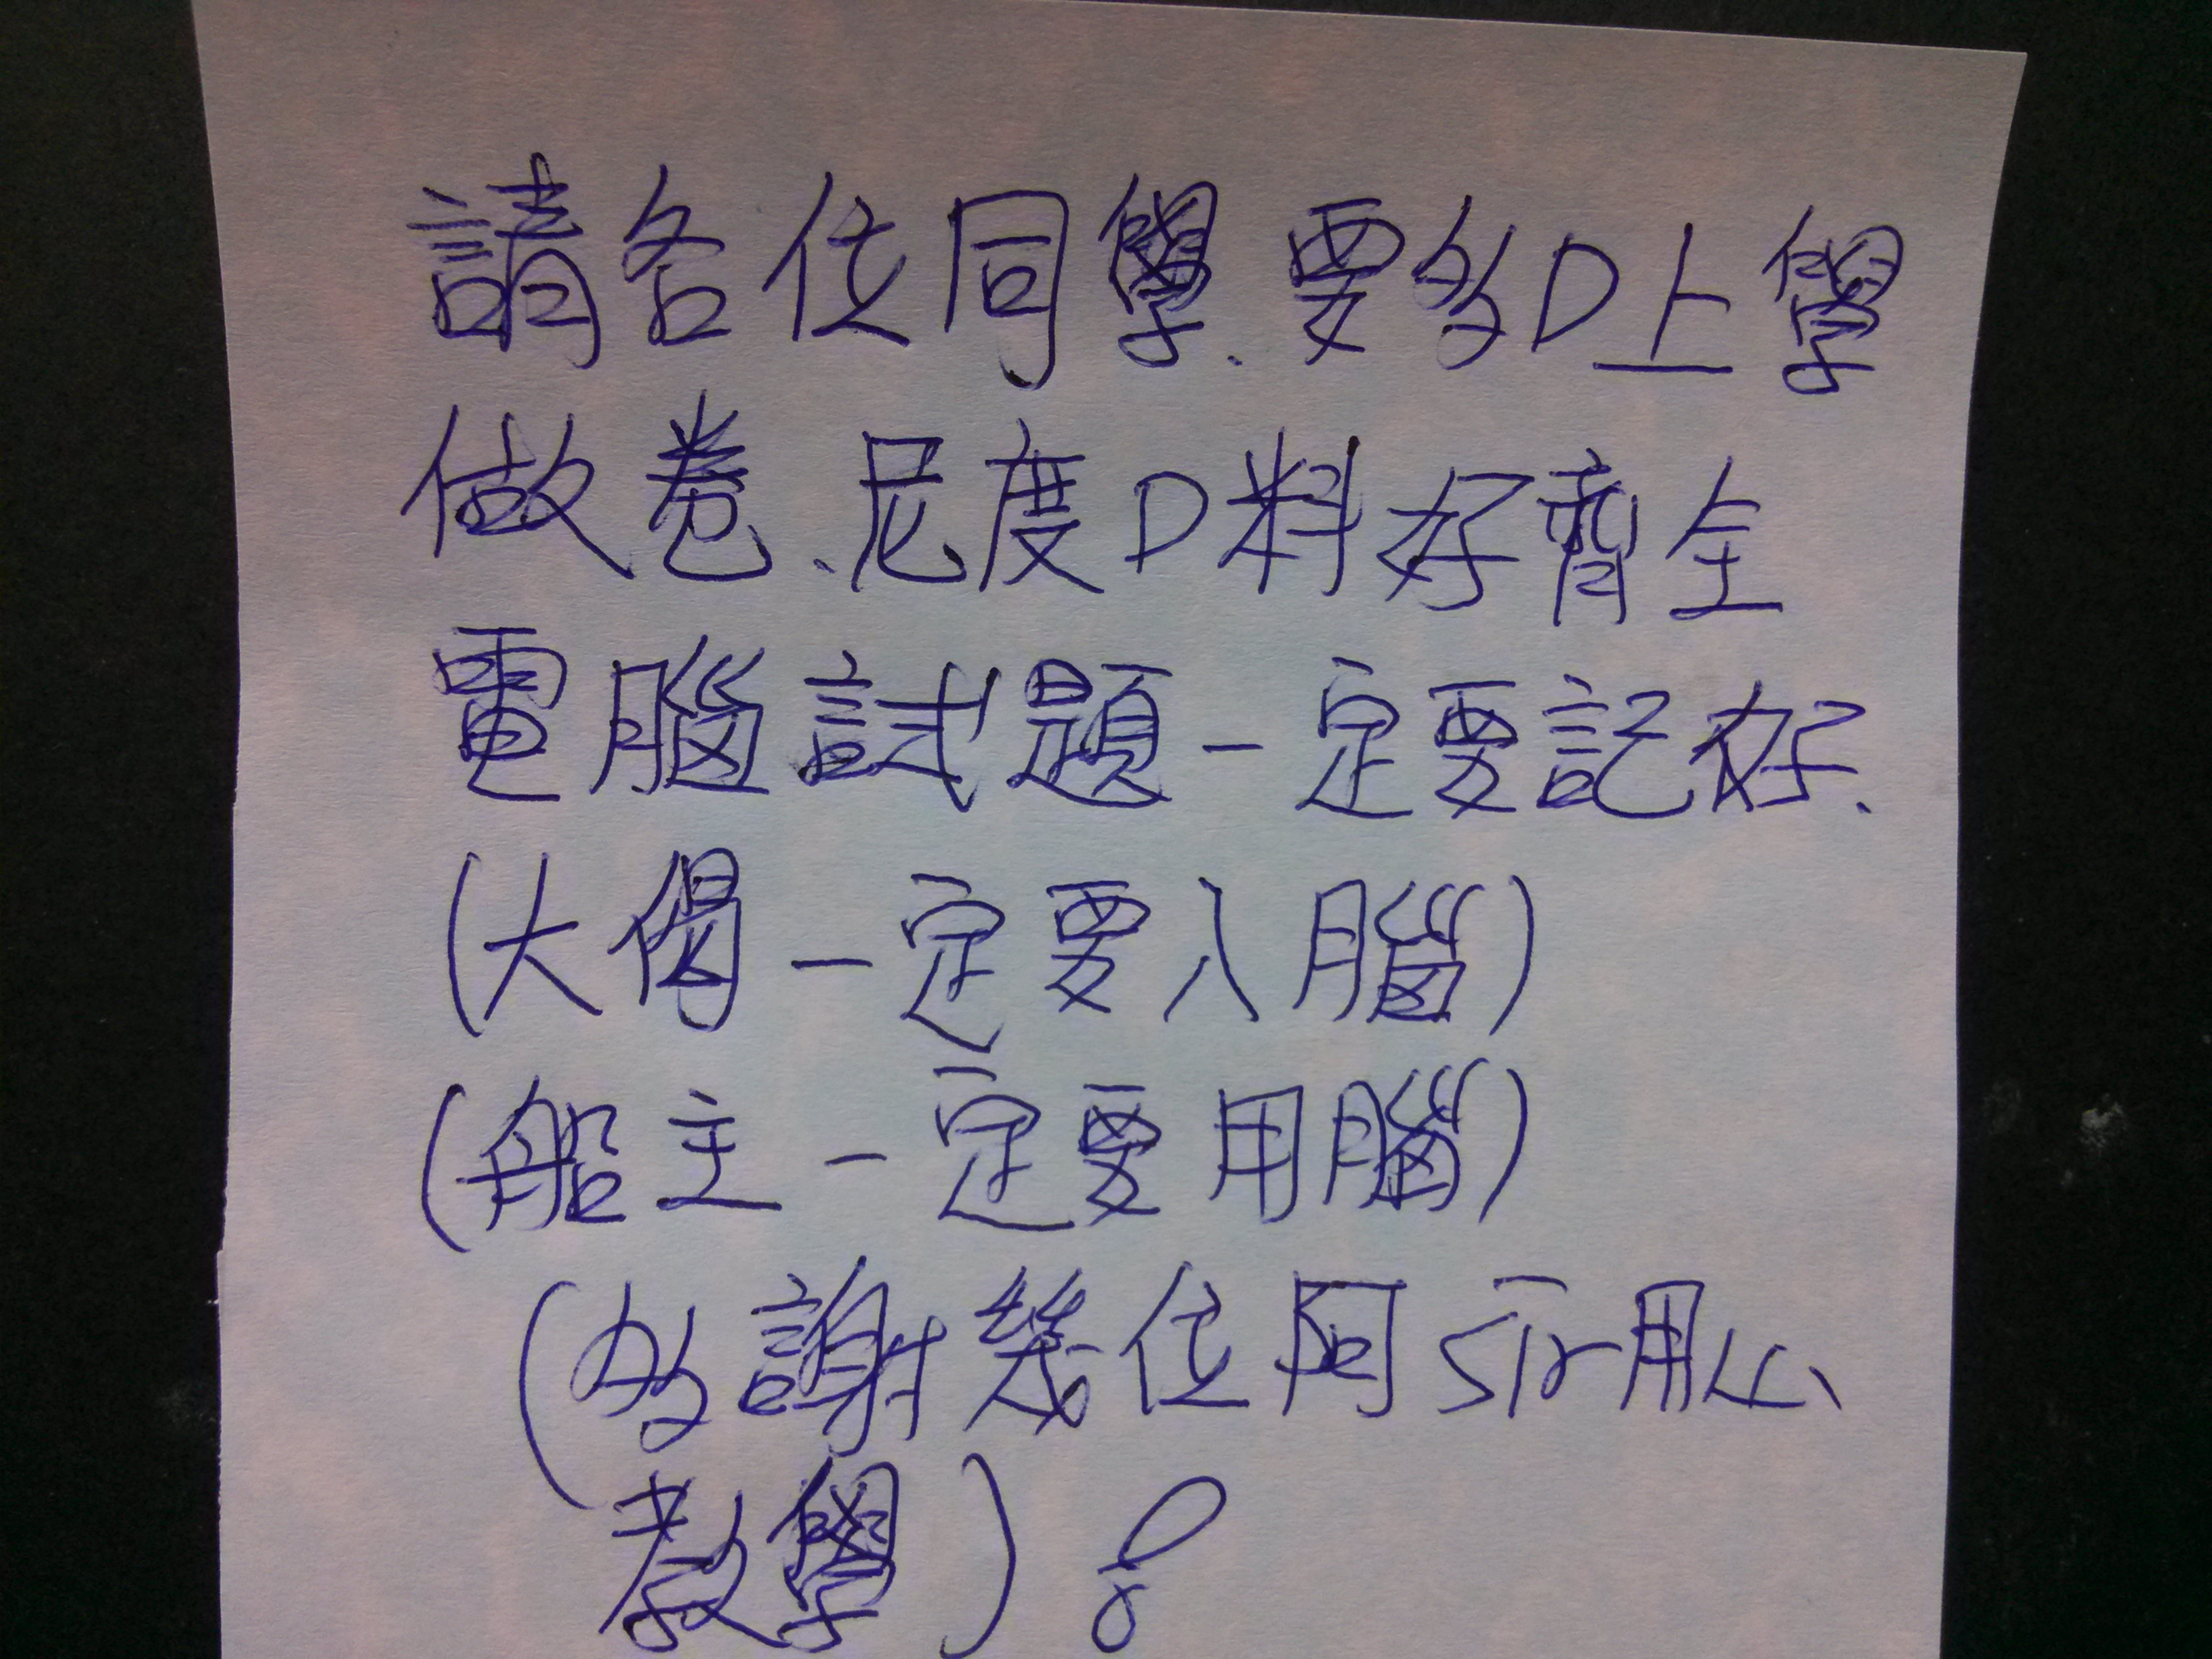 請各位同學、要多D上學
做卷、尼度D料好齊全
電腦試題一定要記好、
(大偈一定要入腦)
(船主一定要用腦)
(多謝幾位阿sir用心
教學)!